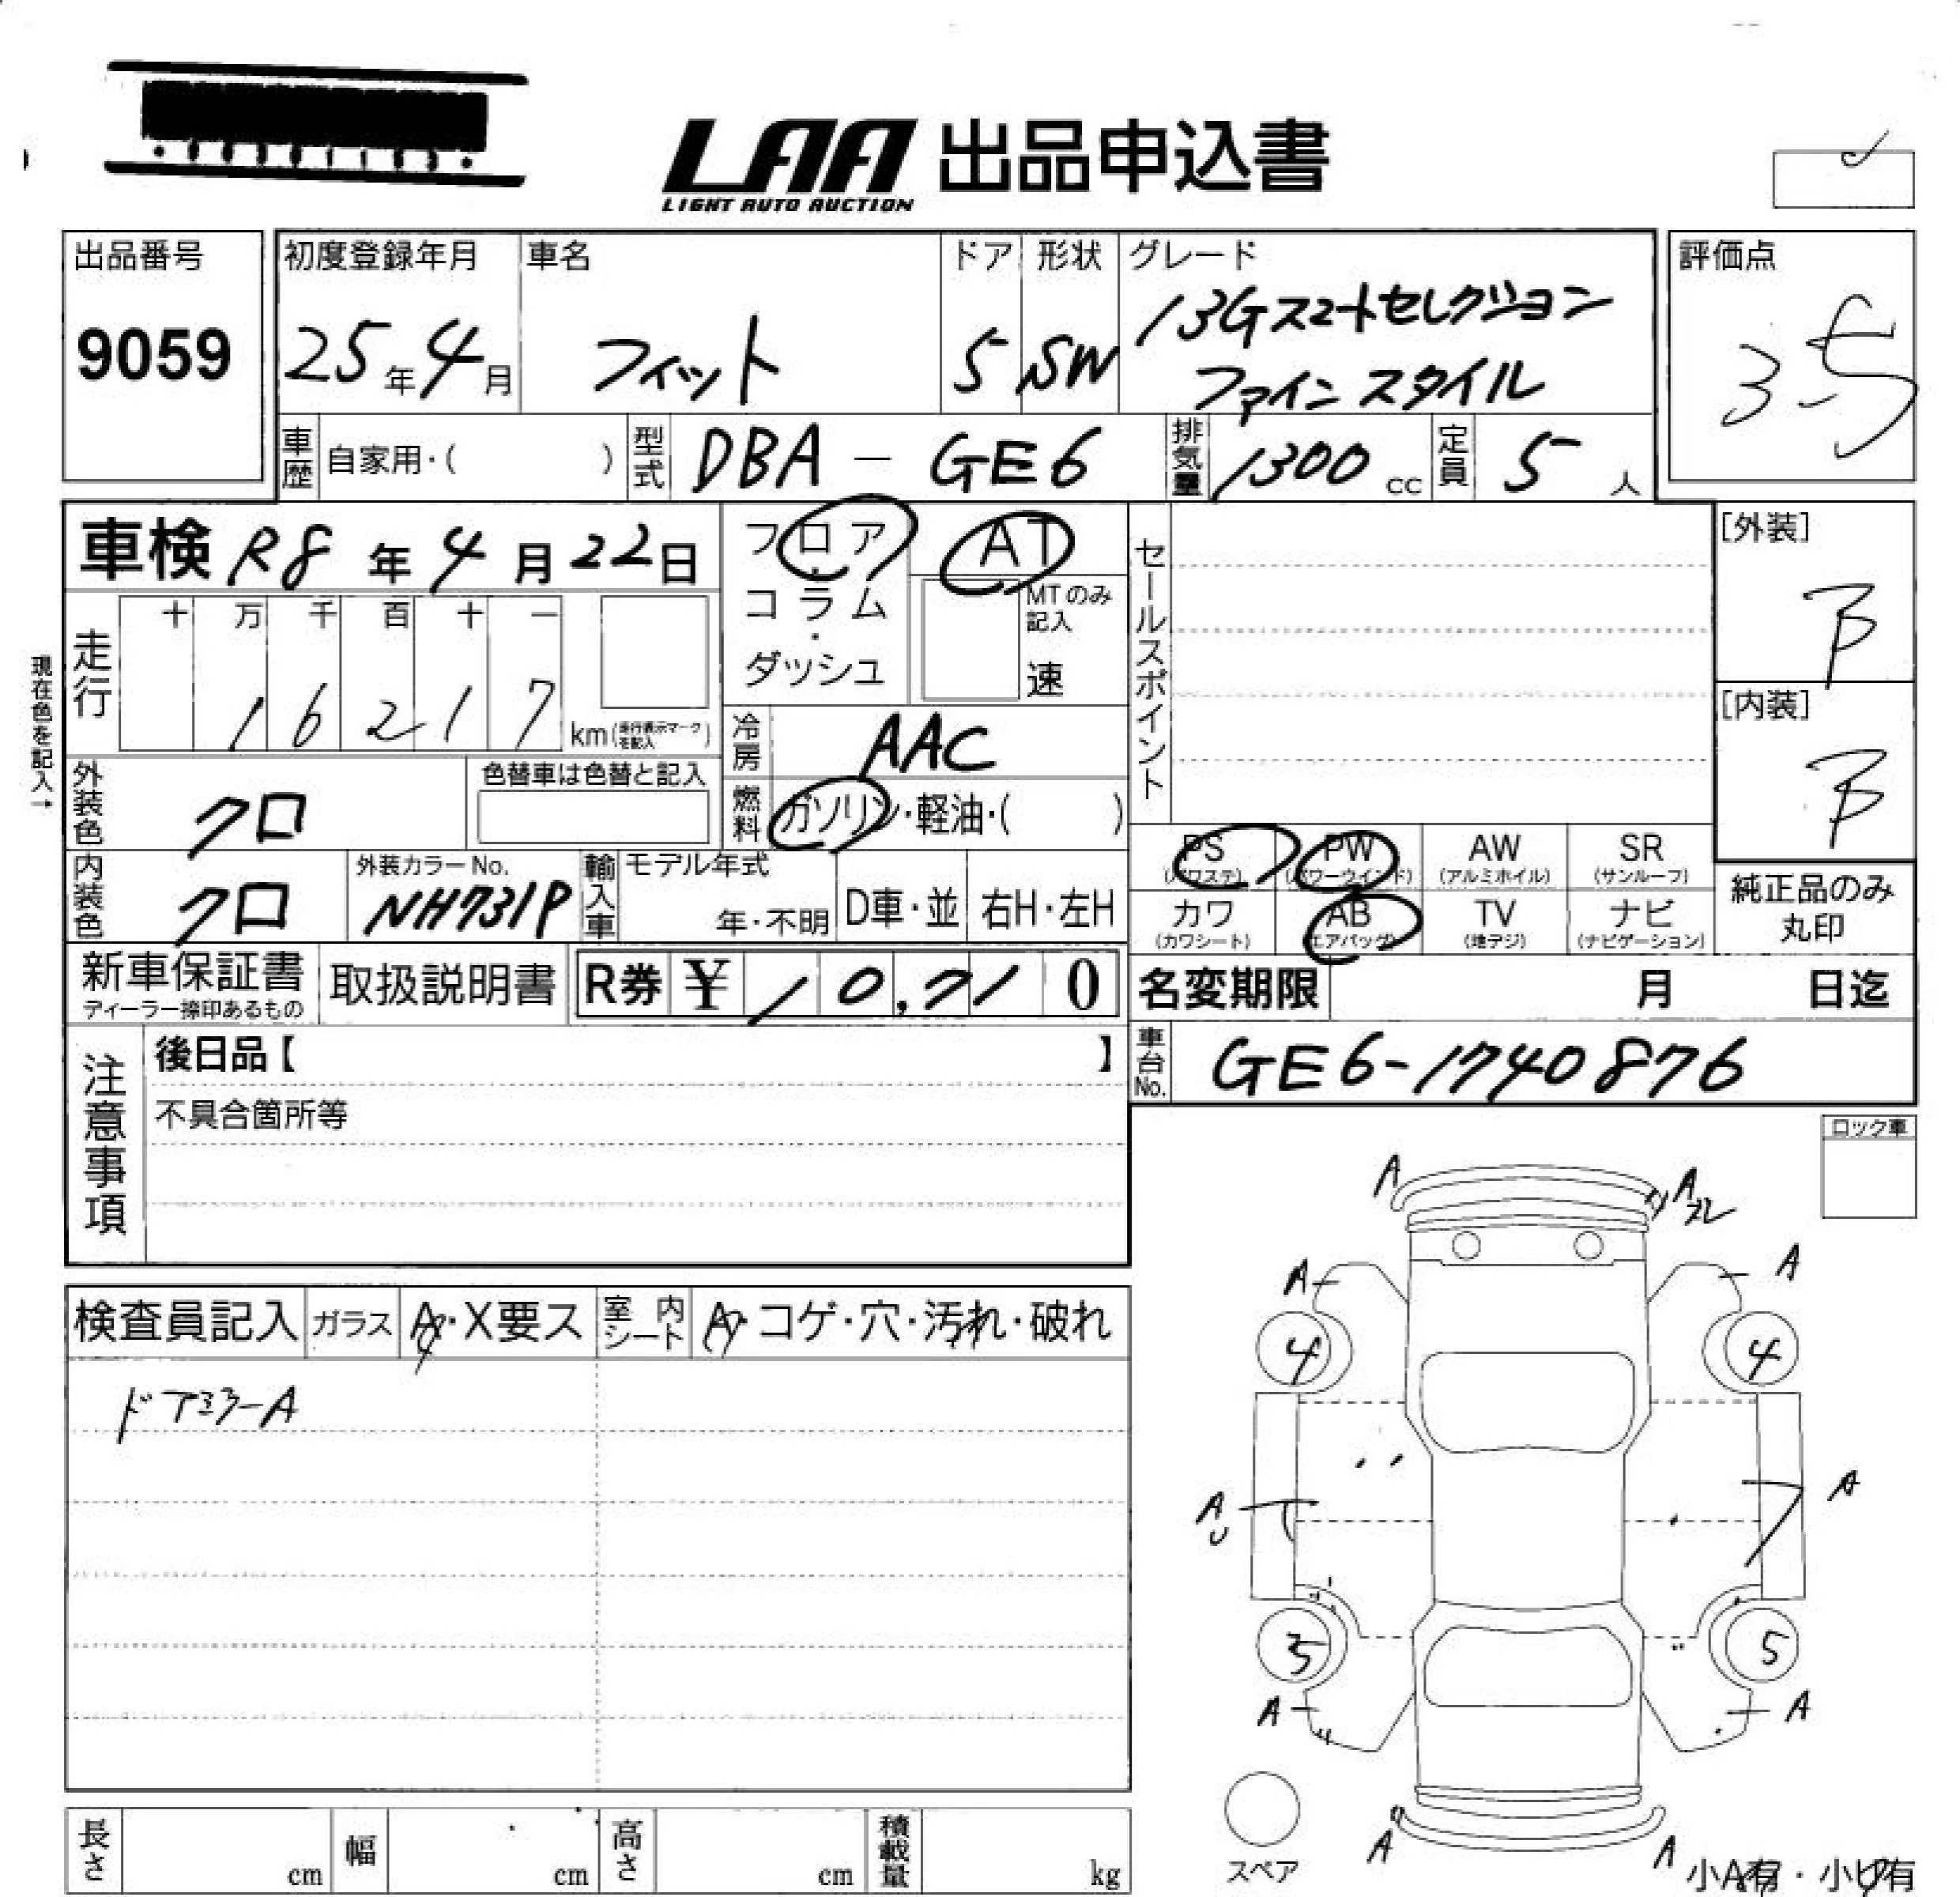 LAA 出品申込書
LIGHT AUTO AUCTION
出品番号
9059
初度登録年月
25年4月
車名
フィット
ドア
5
形状
SW
グレード
13Gスマートセレクション
ファインスタイル
評価点
3.5
車歴 自家用・( )
型式 DBA - GE6
排気量 1300 cc
定員 5 人
車検 R8年4月22日
フロア・コラム・ダッシュ
AT
MTのみ記入
速
セールスポイント
[外装]
B
[内装]
B
現在色を記入→
走行
十 万 千 百 十 一
1 6 2 1 7
km(走行表示マークを記入)
冷房 AAC
燃料 ガソリン・軽油・( )
外装色 クロ
色替車は色替と記入
内装色 クロ
外装カラーNo.
NH731P
輸入車
モデル年式
年・不明
D車・並
右H・左H
PS (パワステ)
PW (パワーウインド)
AW (アルミホイル)
SR (サンルーフ)
カワ (カワシート)
AB (エアバッグ)
TV (地デジ)
ナビ (ナビゲーション)
純正品のみ
丸印
新車保証書
ディーラー捺印あるもの
取扱説明書
R券 ¥ 10,710
名変期限 月 日迄
車台No. GE6-1740876
注意事項
後日品【 】
不具合箇所等
ロック車
検査員記入
ガラス A・X要ス
室内シート A・コゲ・穴・汚れ・破れ
ドアミラーA
A
A
ズレ
A
A
4
4
A
U
A
5
A
A
スペア
A
A
小A有・小U有
長さ cm
幅 cm
高さ cm
積載量 kg